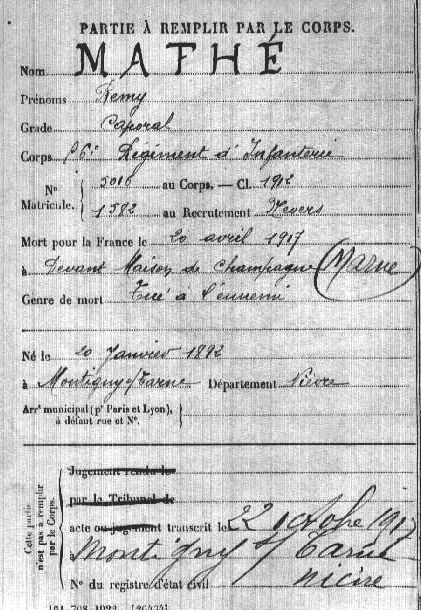 PARTIE À REMPLIR PAR LE CORPS.
Nom MATHÉ
Prénoms Remy
Grade Caporal
Corps Régiment d'Infanterie
N° Matricule. { 5016 au Corps. — Cl. 1912
1582 au Recrutement Nevers
Mort pour la France le 20 avril 1917
à Devant Maison de Champagne (MARNE)
Genre de mort Tué à l'ennemi
Né le 20 Janvier 1892
à Montigny s/ Canne Département Nièvre
Arrt municipal (pr Paris et Lyon),
à défaut rue et N°.
Cette partie n'est pas à remplir par le Corps.
Jugement rendu le
par le Tribunal de
acte ou jugement transcrit le 22 octobre 1917
à Montigny s/ Canne
N° du registre d'état civil Nièvre